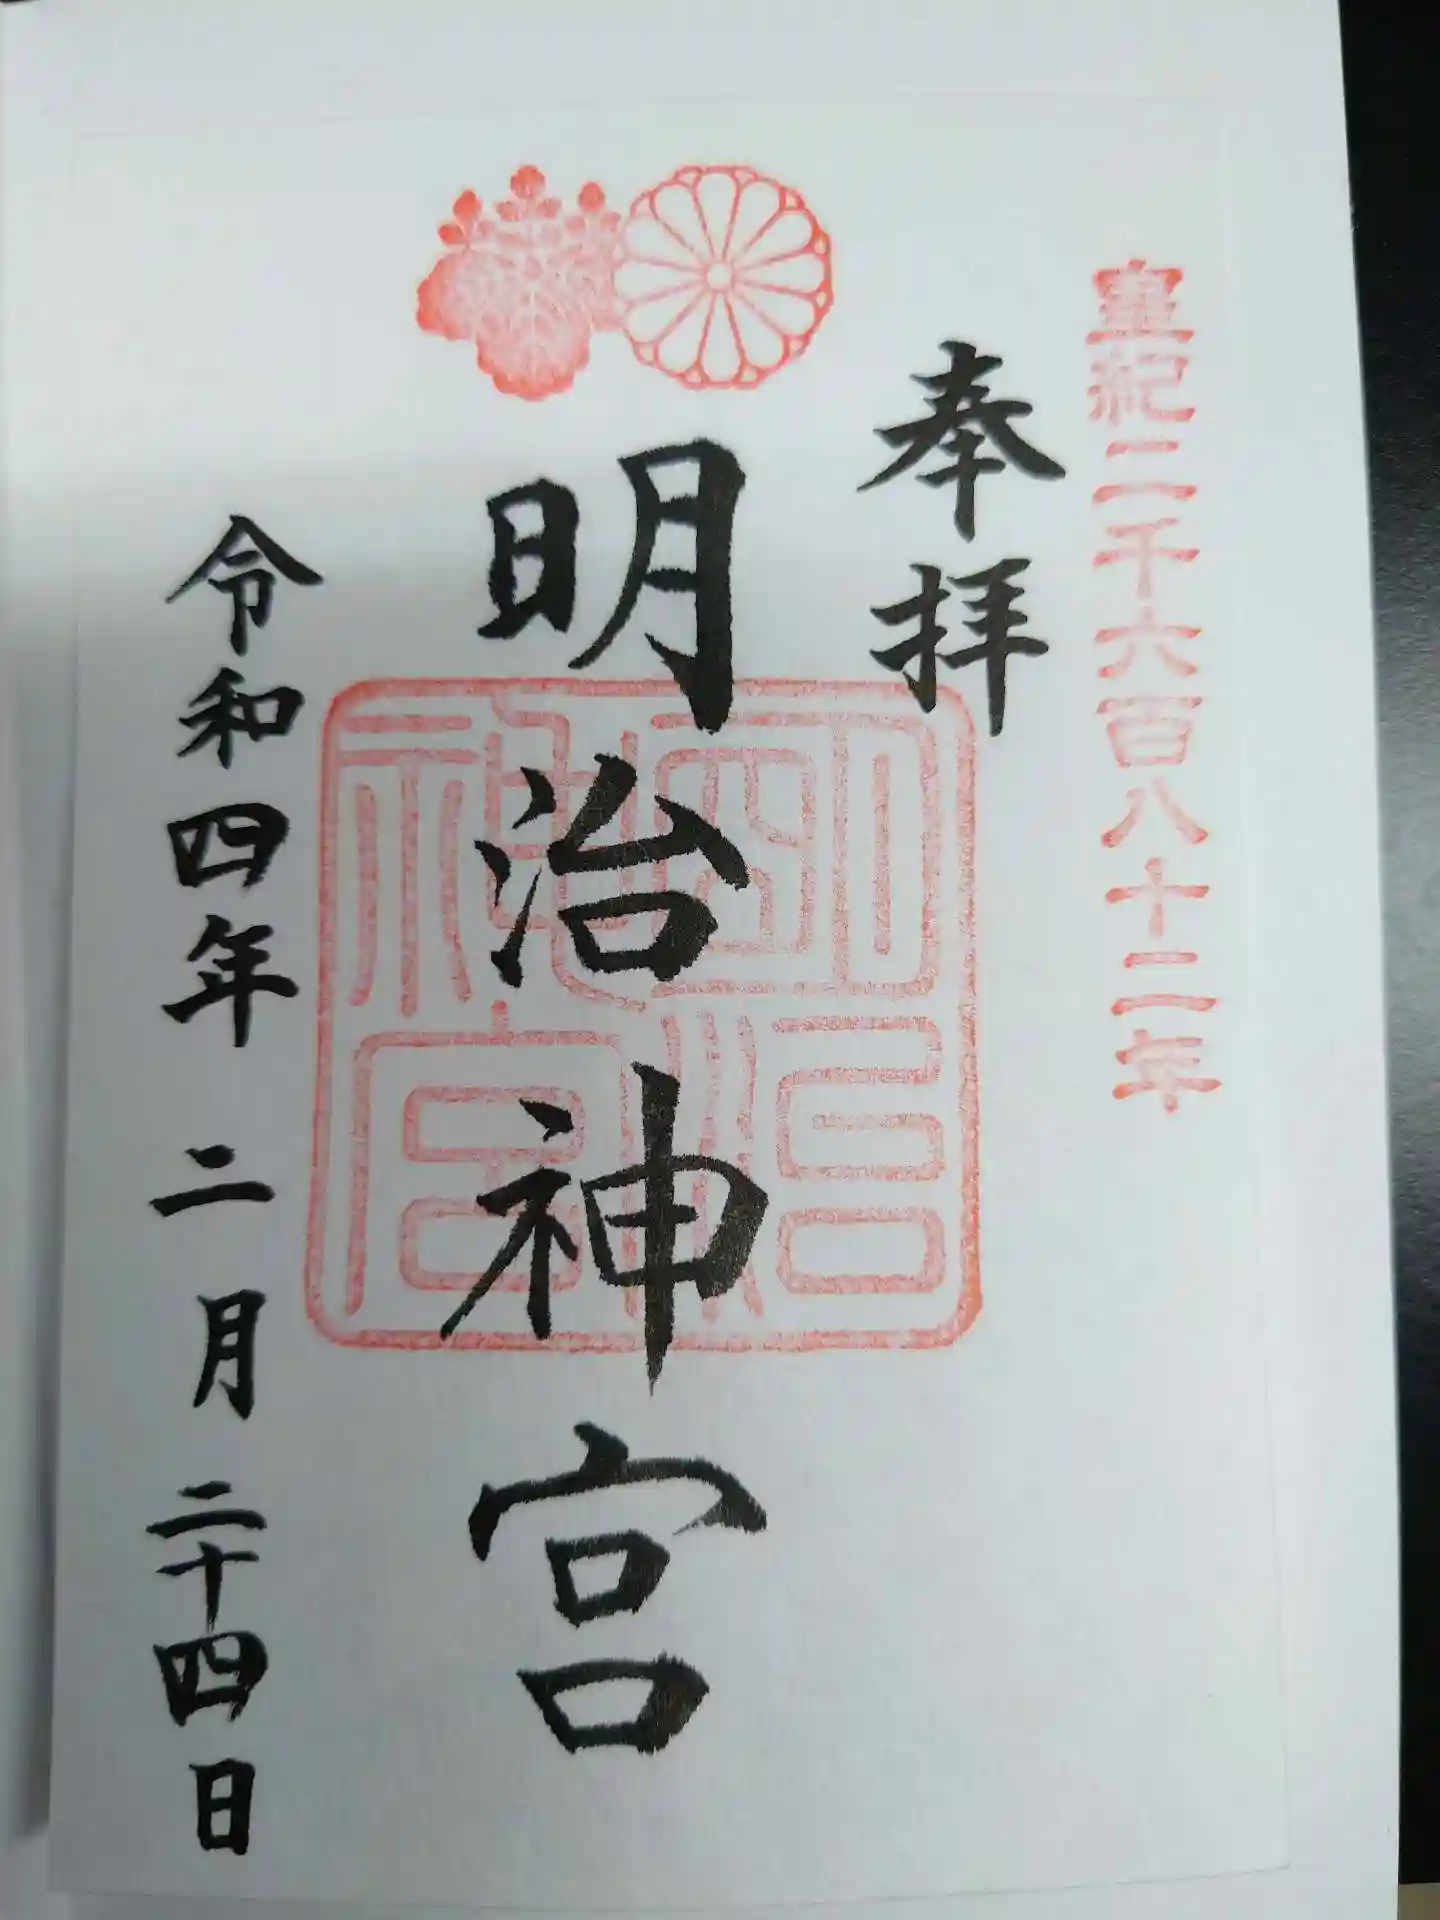 皇紀二千六百八十二年
奉拝
明治神宮
明治神宮
令和四年 二月 二十四日